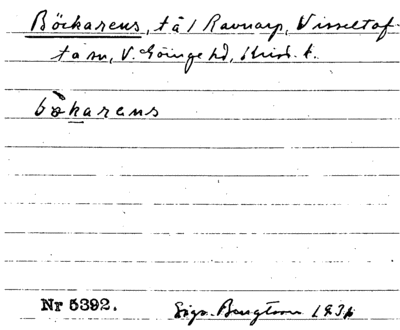 Böckarens, tå i Ravnarp, Visseltof-
ta sn, V. Göinge hd, Krist. l.
bökarens
Nr 5392.
Sign. Bengtson 1931